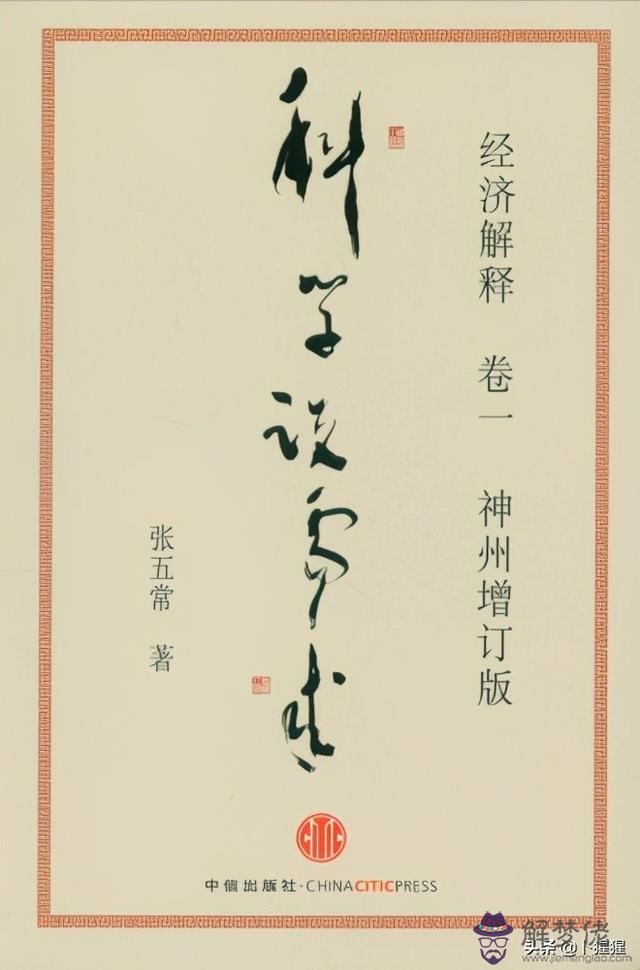 经济解释 卷一 神州增订版
科学说需求
张五常 著
CITIC
中信出版社·CHINACITICPRESS
解梦佬
头条@卜猩猩
www.jiemenglao.com